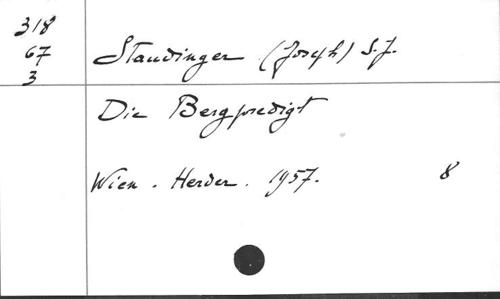 318
67
3
Staudinger (Joseph) S.J.
Die Bergpredigt
Wien. Herder. 1957. 8